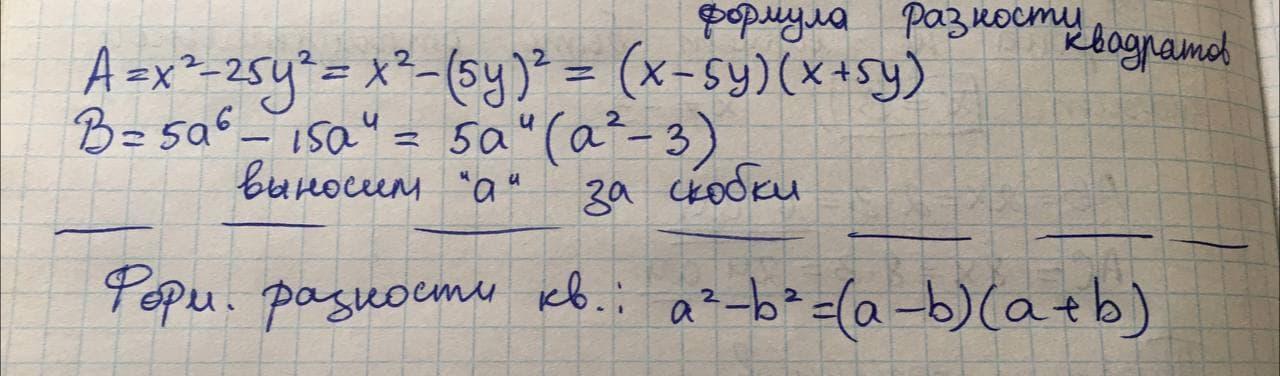 формула разности
квадратов
A = x² - 25y² = x² - (5y)² = (x - 5y)(x + 5y)
B = 5a⁶ - 15a⁴ = 5a⁴(a² - 3)
выносим "a" за скобки
Форм. разности кв.: a² - b² = (a - b)(a + b)